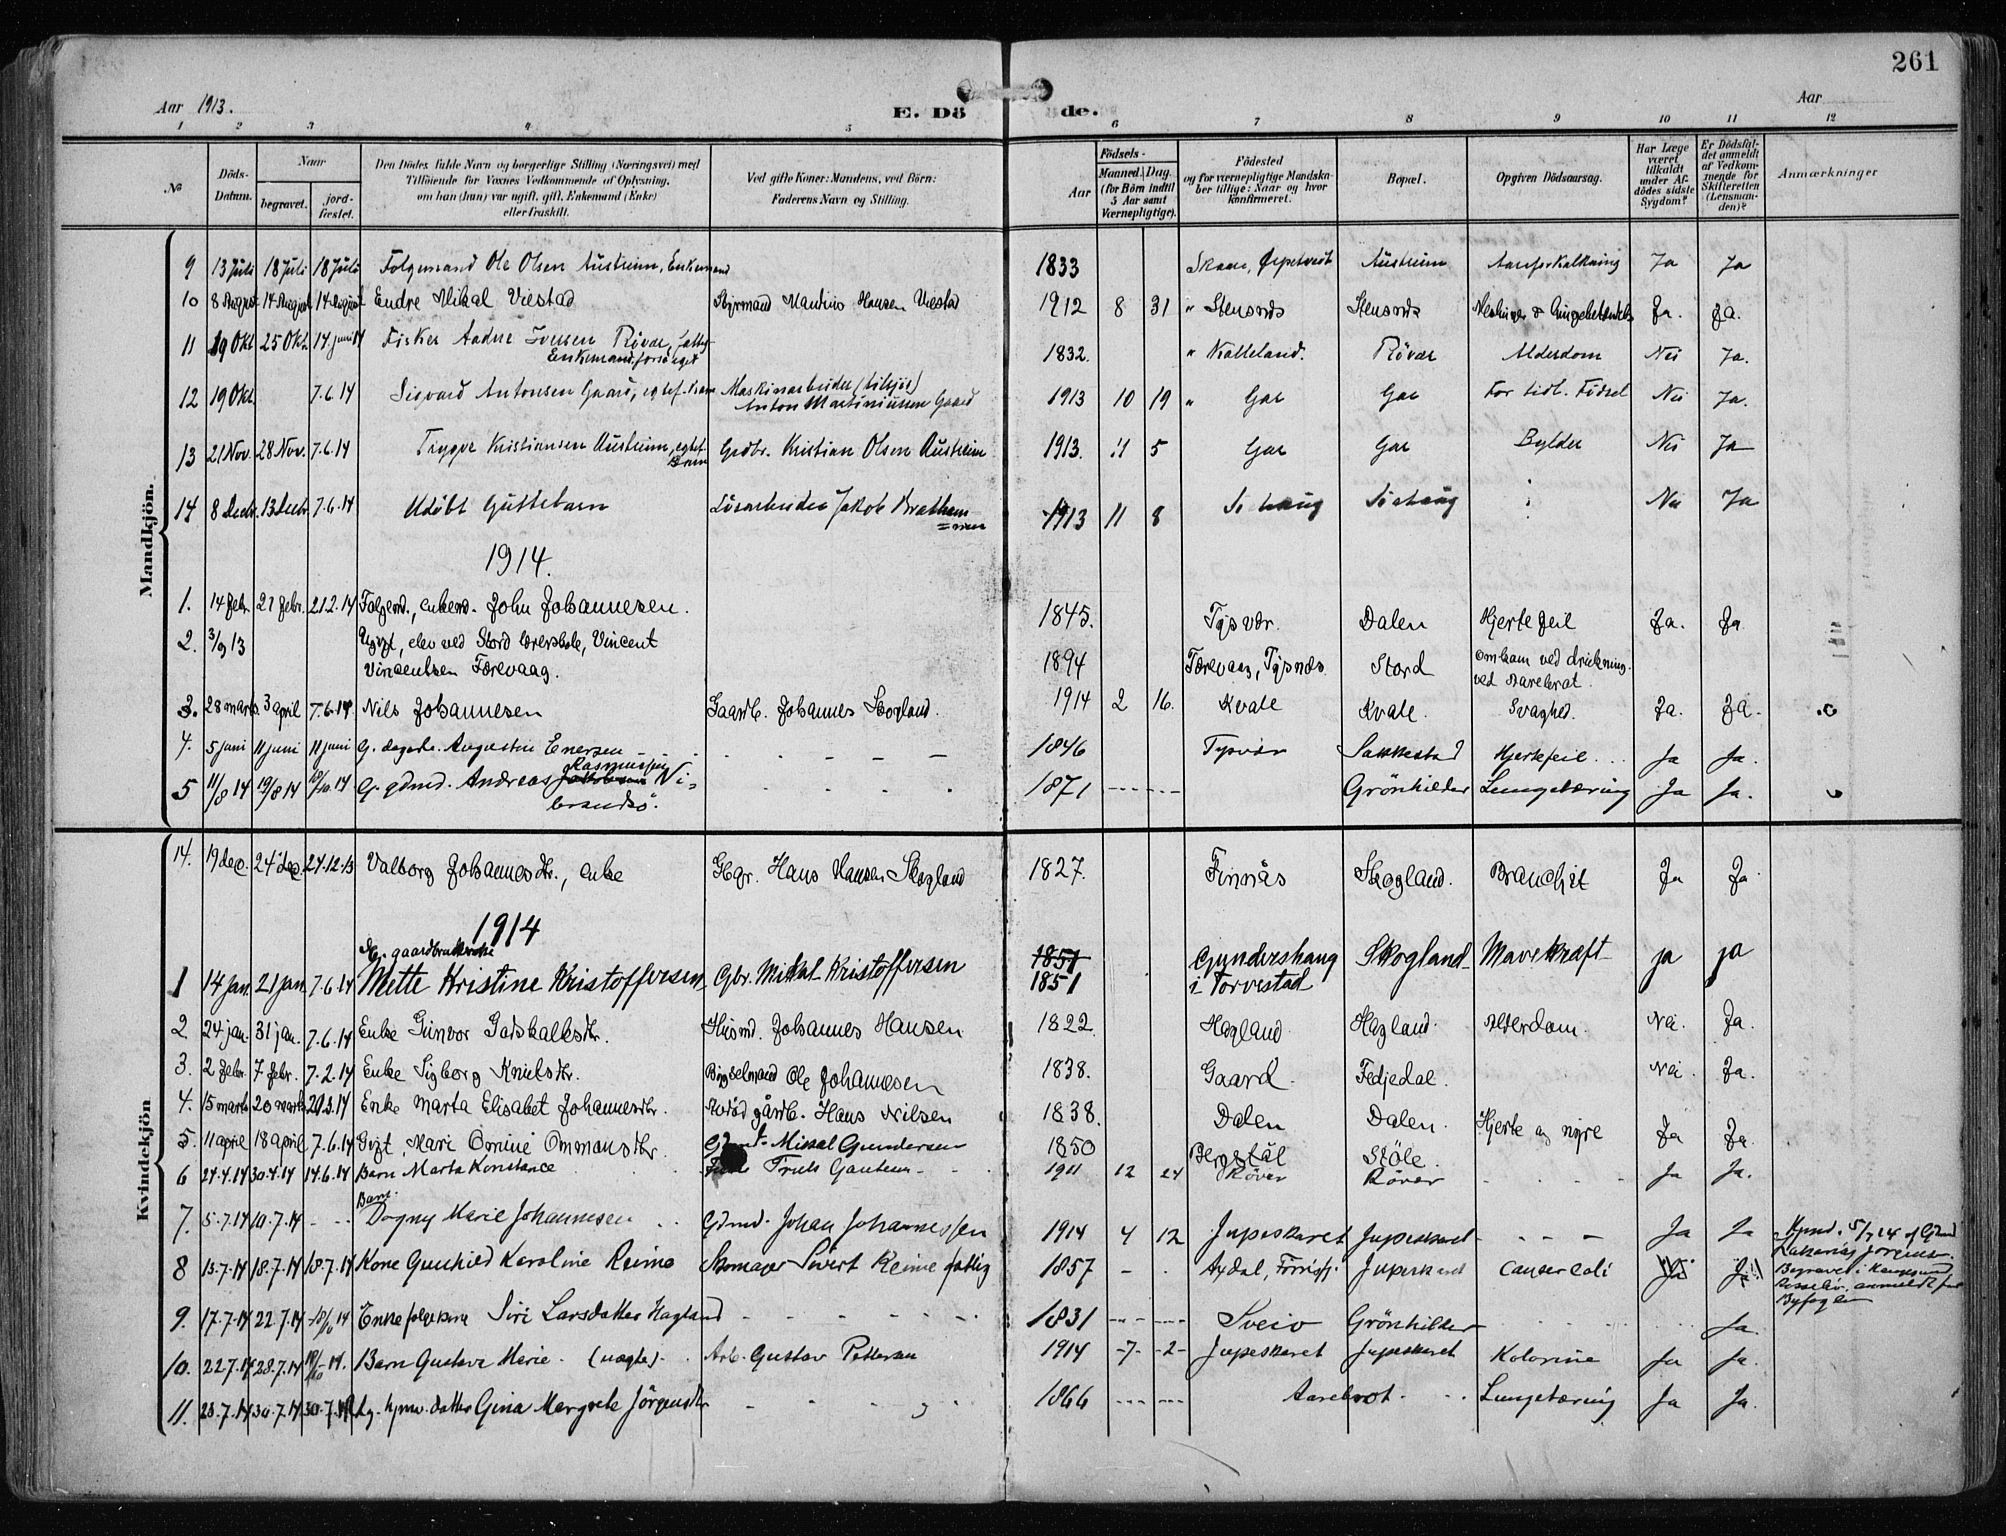 261
Aar 1913.
E. Dö
de.
Aar
1 2 3 4 5 6 7 8 9 10 11 12
No
Döds-
Datum.
Naar
begravet.
jord-
fæstet.
Den Dödes fulde Navn og borgerlige Stilling (Næringsvei) med
Tilföiende for Voxnes Vedkommende af Oplysning,
om han (hun) var ugift, gift, Enkemand (Enke)
eller fraskilt.
Ved gifte Koner: Mandens, ved Börn:
Faderens Navn og Stilling.
Födsels-
Aar
Maaned. Dag.
(for Börn indtil
5 Aar samt
Værnepligtige).
Födested
og for værnepligtige Mandska-
ber tillige: Naar og hvor
konfirmeret.
Bopæl.
Opgiven Dödsaarsag.
Har Læge
været
tilkaldt
under Af-
dödes sidste
Sygdom?
Er Dödsfal-
det anmeldt
af Vedkom-
mende for
Skifteretten
(Lensman-
den)?
Anmærkninger
Mandkjön.
9 13 Juli 18 Juli 18 Juli Folgemand Ole Olsen Austreim, Enkemand 1833 Austreim Aareforkalkning Ja Ja
10 8 August 14 August 14 August Endre Mikal Viestad Styrmand Hansen Viestad 1912 8 31 " Stensnes Stensnes Ja. Ja.
11 19 Okt 25 Okt. 14 juni 14 Fisker Aadne Iversen Røvær, fattig
Enkemand, forsørget 1832. " Kalleland. Røvær Alderdom Nei Ja.
12 19 Okt. 7.6.14 Sigvard Antonsen Gaard, egtef. Barn Maskinarbeider (tilsjøs)
Anton Martiniussen Gaard 1913 10 19 " Gar Gar For tidl. Födsel Nei Ja.
13 21 Nov. 28 Nov. 7.6.14 Trygve Kristiansen Austreim, egtef.
Barn Grdbr. Kristian Olsen Austreim 1913. 11 5 Gar Gar Bylder Nei Ja
14 8 Decbr. 13 Decbr. 7.6.14 Udöbt Guttebarn Lösarbeider Jakob 1913 11 8 Nei Ja
1914.
1. 14 febr. 21 febr. 21.2.14 Folgem., enkem. John Johannesen. 1845. Tysvær. Dalen Hjertefeil Ja. Ja
2. 3/9 13 Ugift, elev ved Stord lærerskole, Vincent
Vincentsen Færevaag. 1894 Færevaag, Tysnæs Stord omkom ved drukning
ved Aarebrot.
3. 28 marts. 3 april 7.6.14 Nils Johannesen Gaardb. Johannes Skogland. 1914 2 16. Kvale Kvale. Svaghed. Ja. Ja.
4. 5 juni 11 juni 11 juni G. dagarb. Augustin Enersen 1846 Tysvær Sakkestad Hjertefeil Ja Ja.
5 11/8 14 19/8 14 18/10 14 G. gdmd. Andreas Rasmussen Ni-
brandsö. 1871 Grönhilder Lungetæring Ja Ja.
Kvindekjön
14. 19 dec. 24 dec. 27.12.13 Valborg Johannesdtr., enke Gbr. Hans Hansen Skogland 1827. Finnås Skogland. Bronchit Ja Ja
1914
1 14 Jan. 21 Jan. 7.6.14 Mette Kristine Kristoffersen Gbr. Mikal Kristoffersen 1851
1851 Gundershaug
i Torvestad Skogland Mavekræft ja ja
2 24 jan. 31 jan. 7.6.14 Enke Gunvor Gadskalksdtr. Husmd. Johannes Hansen 1822. Hagland. Hagland. Alderdom. Nei. Ja.
3. 2 febr. 7 febr. 7.2.14 Enke Sigborg Knielsdtr. Bygselmand Ole Johannesen 1838. Gaard. Fedjedal. Nei. Ja.
4. 15 marts 20 marts 20.3.14 Enke Marta Elisabet Johannesdtr. gårdb. Hans Nilsen 1838. Dalen Dalen. Hjerte og nyre Ja Ja.
5. 11 april 18 april 7.6.14 Gift, Mari Omine Ommunsdtr. Mikal Gundersen 1850 Bergstøl Støle.
6 27.4.14 30.4.14 14.6.14 Barn Marta Konstance Truls Gautesen 1911 12 24 Røvær Røvær Ja Ja.
7. 5.7.14 10.7.14 Barn
Dagny Marie Johannesen Gdmd. Johan Johannessen 1914 4 12 Jupeskaret Jupeskaret Ja Ja
8 15.7.14 18.7.14 18.7.14 Kone Gunhild Karoline Reime Skomager Sivert Reime fattig 1857 Jupeskaret Cancer coli Ja Ja
9. 17.7.14 22.7.14 18/10 14 Enke folgekone Siri Larsdatter Hagland 1831 Sveio Grönhilder Ja.
10. 22.7.14 28.7.14 18/10 14. Barn Gustava Marie. (uægte). Arb. Gustav Pettersen 1914 7 2 Jupeskaret Jupeskaret Kolerine Ja Ja.
11. 23.7.14 30.7.14 30.7.14 Ug. datter Gina Margrete Jörgensdtr. 1866 Aarebrot. Lungetæring Ja Ja.